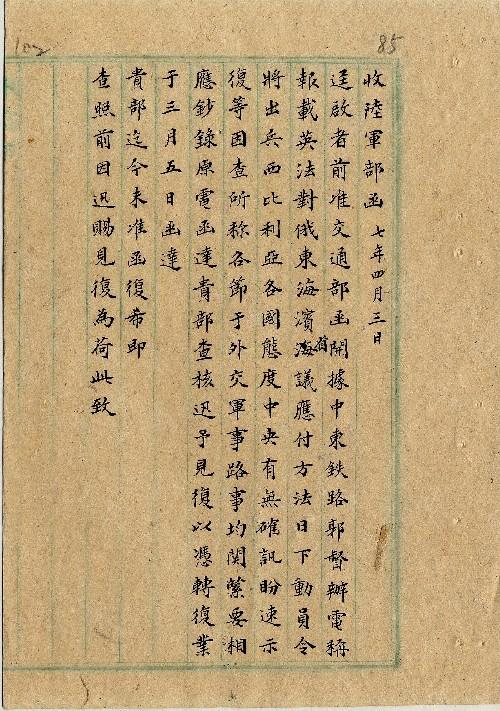 85
102
收陸軍部函 七年四月三日
逕啟者前准交通部函開據中東鉄路郭督辦電稱
報載英法對俄東海濱省議應付方法日下動員令
將出兵西比利亞各國態度中央有無確訊盼速示
復等因查所称各節于外交軍事路事均関緊要相
應鈔錄原電函達貴部查核迅予見復以憑轉復業
于三月五日函達
貴部迄今未准函復希即
查照前因迅賜見復為荷此致